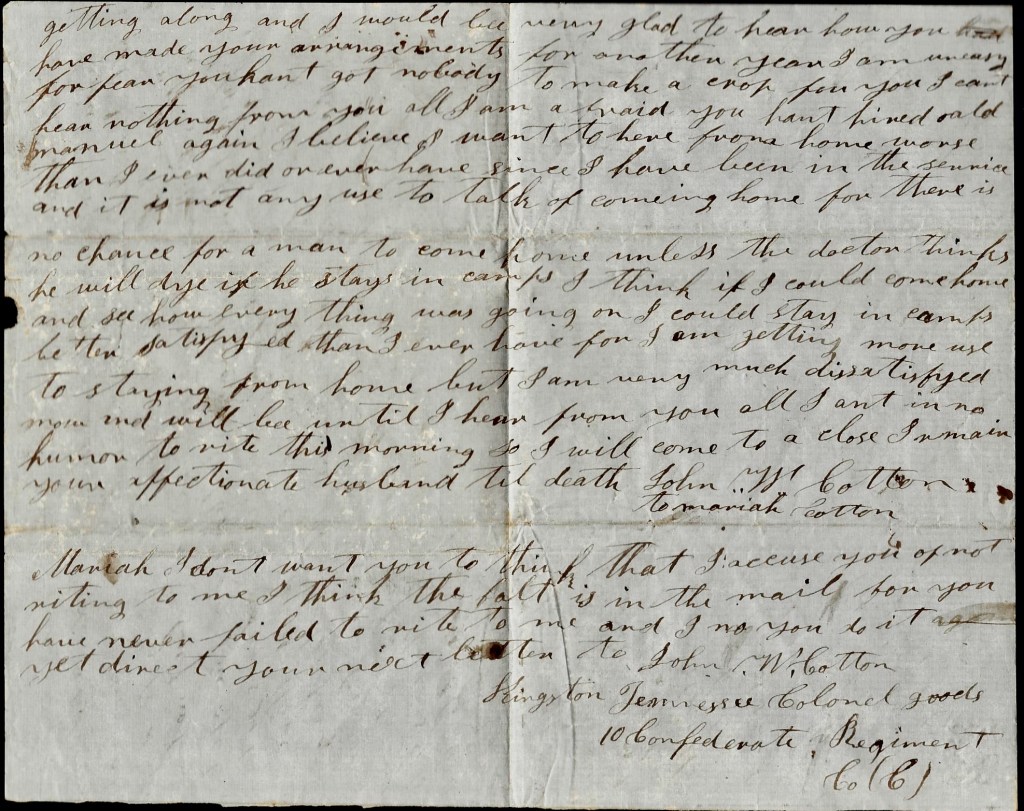 getting along and I would bee very glad to hear how you had
have made your arringements for another year I am uneasy
for fear you hant got nobody to make a crop for you I cant
hear nothing from you all I am afraid you hant hired oald
manuel again I believe I want to here from home worse
than I ever did or ever have since I have been in the service
and it is not any use to talk of comeing home for there is
no chance for a man to come home unless the doctor thinks
he will dye if he stays in camps I think if I could come home
and see how every thing was going on I could stay in camps
better satisfyed than I ever have for I am getting more use
to staying from home but I am very much dissatisfyed
now and will bee until I hear from you all I ant in no
humor to rite this morning so I will come to a close I remain
your affectionate husband til death John W Cotton
to mariah cotton
Mariah I dont want you to think that I accuse you of not
riting to me I think the falt is in the mail for you
have never failed to rite to me and I no you do it
yet direct your next letter to John W Cotton
Kingston Tennessee Colonel goods
10 Confederate Regiment
Co (C)